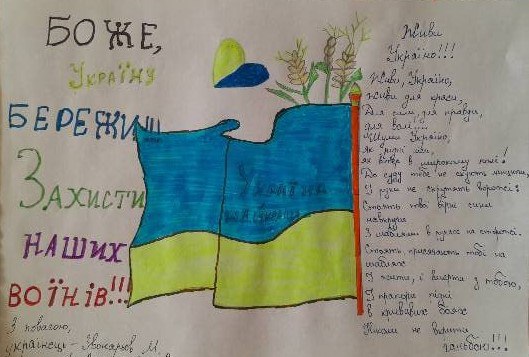 БОЖЕ,
Україну
БЕРЕЖИ!!!
Захисти
наших
воїнів!!!
З повагою,
українець - Звонарьов М.
Україна
Живи
Україно!!!
Живи, Україно,
живи для краси,
Для сили, для правди,
для волі!...
Шуми Україно,
як рідні ліси,
як вітер в широкому полі!
До суду тебе не скують ланцюги,
І руки не скрутять ворожі:
Стоять твої вірні сини
навкруги
З шаблями в руках на сторожі.
Стоять присягають тобі на
шаблях
І жити, і вмерти з тобою,
І прапори рідні
в кривавих боях
Ніколи не вкриють
ганьбою!!!